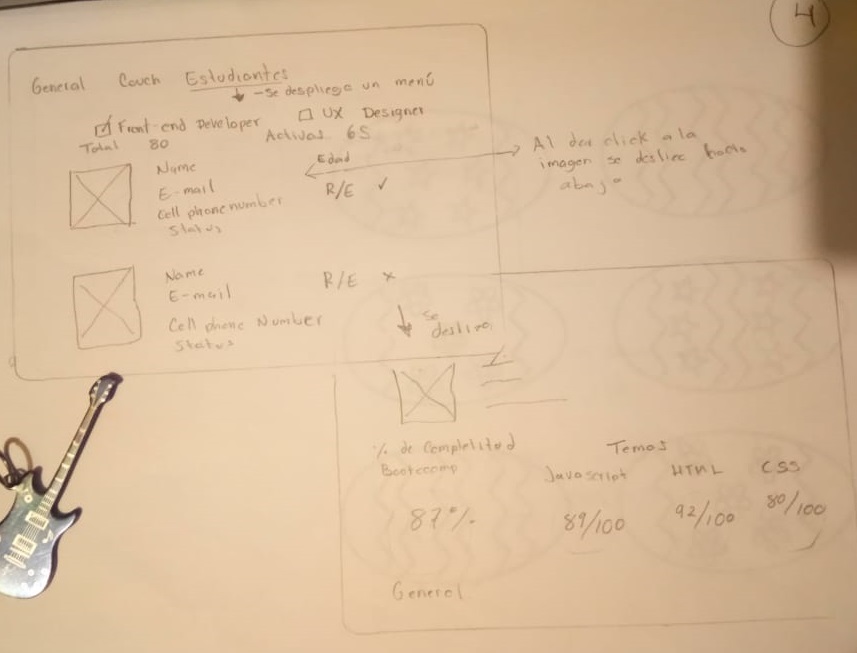 4
General Couch Estudiantes
- Se despliega un menú
Front-end Developer UX Designer
Total 80 Activas 65
Name
E-mail
Cell phone number
Status
Edad
R/E ✓
Al dar click a la
imagen se desliza hacia
abajo
Name
E-mail
Cell phone Number
Status
R/E x
Se
desliza
% de Completitud
Bootcamp
87%
Temas
Javascript HTML CSS
89/100 92/100 80/100
General